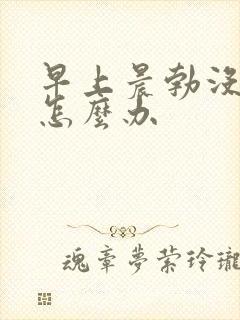 早上晨勃没
怎麼办
魂章夢萦玲瓏